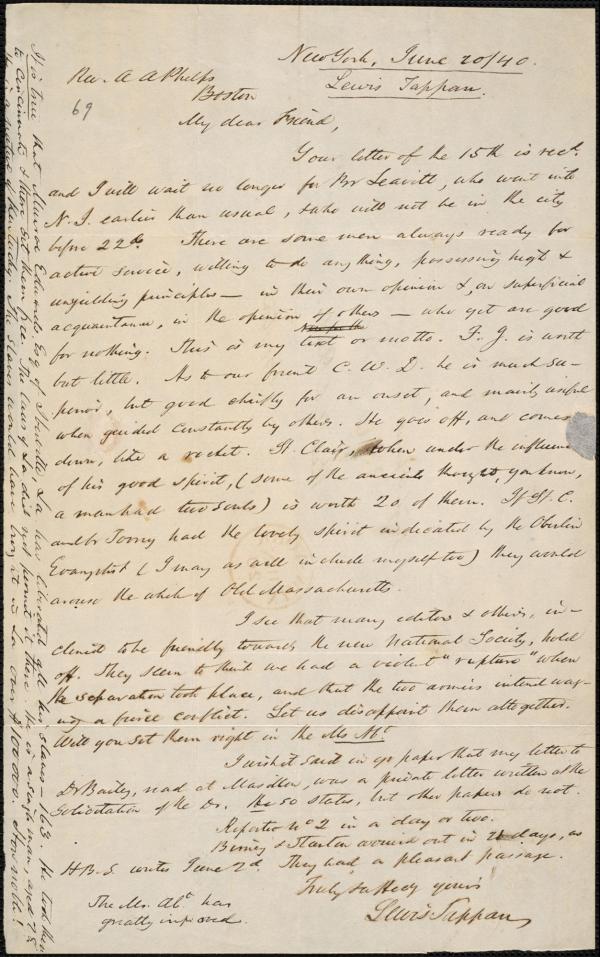 New York, June 20/40.
Lewis Tappan.
Rev. A A Phelps
Boston
69
My dear Friend,
Your letter of the 15th is recd.
and I will wait no longer for Br Leavitt, who went into
N. J. earlier than usual, & who will not be in the city
before 22d. There are some men always ready for
active service, willing to do anything, possessing high &
unyielding principles — in their own opinion &, on superficial
acquaintance, in the opinion of others — who yet are good
for nothing. This is my text or motto. F. J. is worth
but little. As to our friend C. W. D. he is much su-
perior, but good chiefly for an onset, and mainly useful
when guided constantly by others. He goes off, and comes
down, like a rocket. St. Clair, when under the influence
of his good spirit, (some of the ancients thought, you know,
a man had two souls) is worth 20 of them. If St. C.
and br Torrey had the lovely spirit indicated by the Oberlin
Evangelist (I may as well include myself too) they would
arouse the whole of Old Massachusetts.
I see that many editors & others, in-
clined to be friendly towards the new National Society, hold
off. They seem to think we had a violent "rupture" when
the separation took place, and that the two armies intend wag-
ing a fierce conflict. Let us disappoint them altogether.
Will you set them right in the Ms Abt.
I wish it said in yr paper that my letter to
Dr Bailey, read at Masillon, was a private letter written at the
solicitation of the Dr. He so states, but other papers do not.
Reporter No 2 in a day or two.
Birney & Stanton arrived out in days, as
H B. S. writes June 2d. They had a pleasant passage.
Truly & affecy yours
Lewis Tappan
The Ms. Abt. has
greatly improved.
It is true that Munroe Edwards Esq. of Iberville, La has liberated all his slaves — 163. He took them
to Cincinnati & there set them free. The laws of La did not permit it there. He is a single man, aged 28
& is a native of Kentucky. The slaves would have brot. it in La over $100,000. How noble!